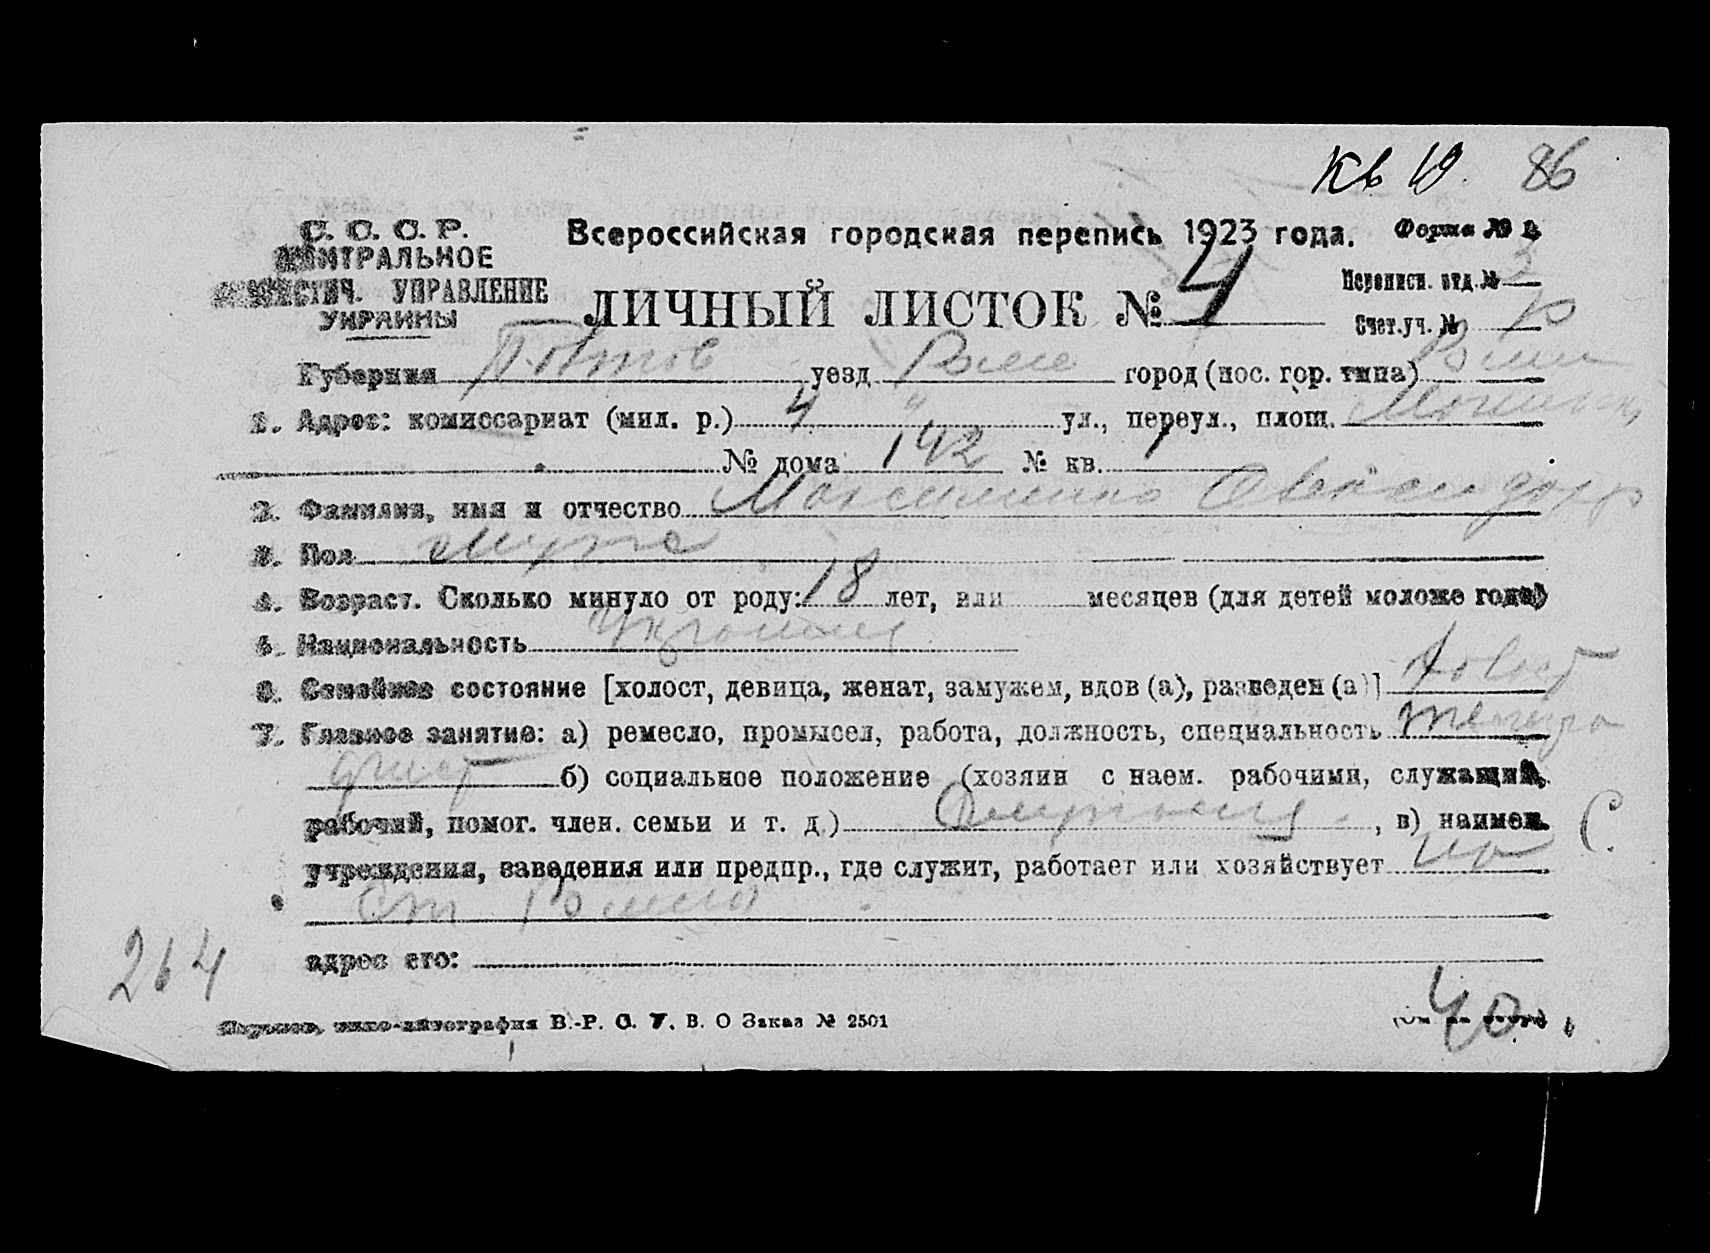 Кв 10. 86
С. С. С. Р.
ЦЕНТРАЛЬНОЕ
СТАТИСТИЧ. УПРАВЛЕНИЕ
УКРАИНЫ
Всероссийская городская перепись 1923 года. Форма № 1.
ЛИЧНЫЙ ЛИСТОК № 4
Переписн. отд. № 3
Счет.уч. №
Губерния Полтов уезд Роме город (пос. гор. типа)
1. Адрес: комиссариат (мил. р.) 4 ул., переул., площ.
№ дома 142 № кв. 1
2. Фамилия, имя и отчество Максименко
3. Пол мужс
4. Возраст. Сколько минуло от роду: 18 лет, или месяцев (для детей моложе года)
5. Национальность Украинец
6. Семейное состояние [холост, девица, женат, замужем, вдов (а), разведен (а)] холост
7. Главное занятие: а) ремесло, промысел, работа, должность, специальность телегра
фист б) социальное положение (хозяин с наем. рабочими, служащий,
рабочий, помог. член. семьи и т. д.) Служащий, в) наимен. С.
учреждения, заведения или предпр., где служит, работает или хозяйствует на
Ст Ромны
адрес его:
264
Харьков, типо-литография В.-Р. С. У. В. О Заказ № 2501
40